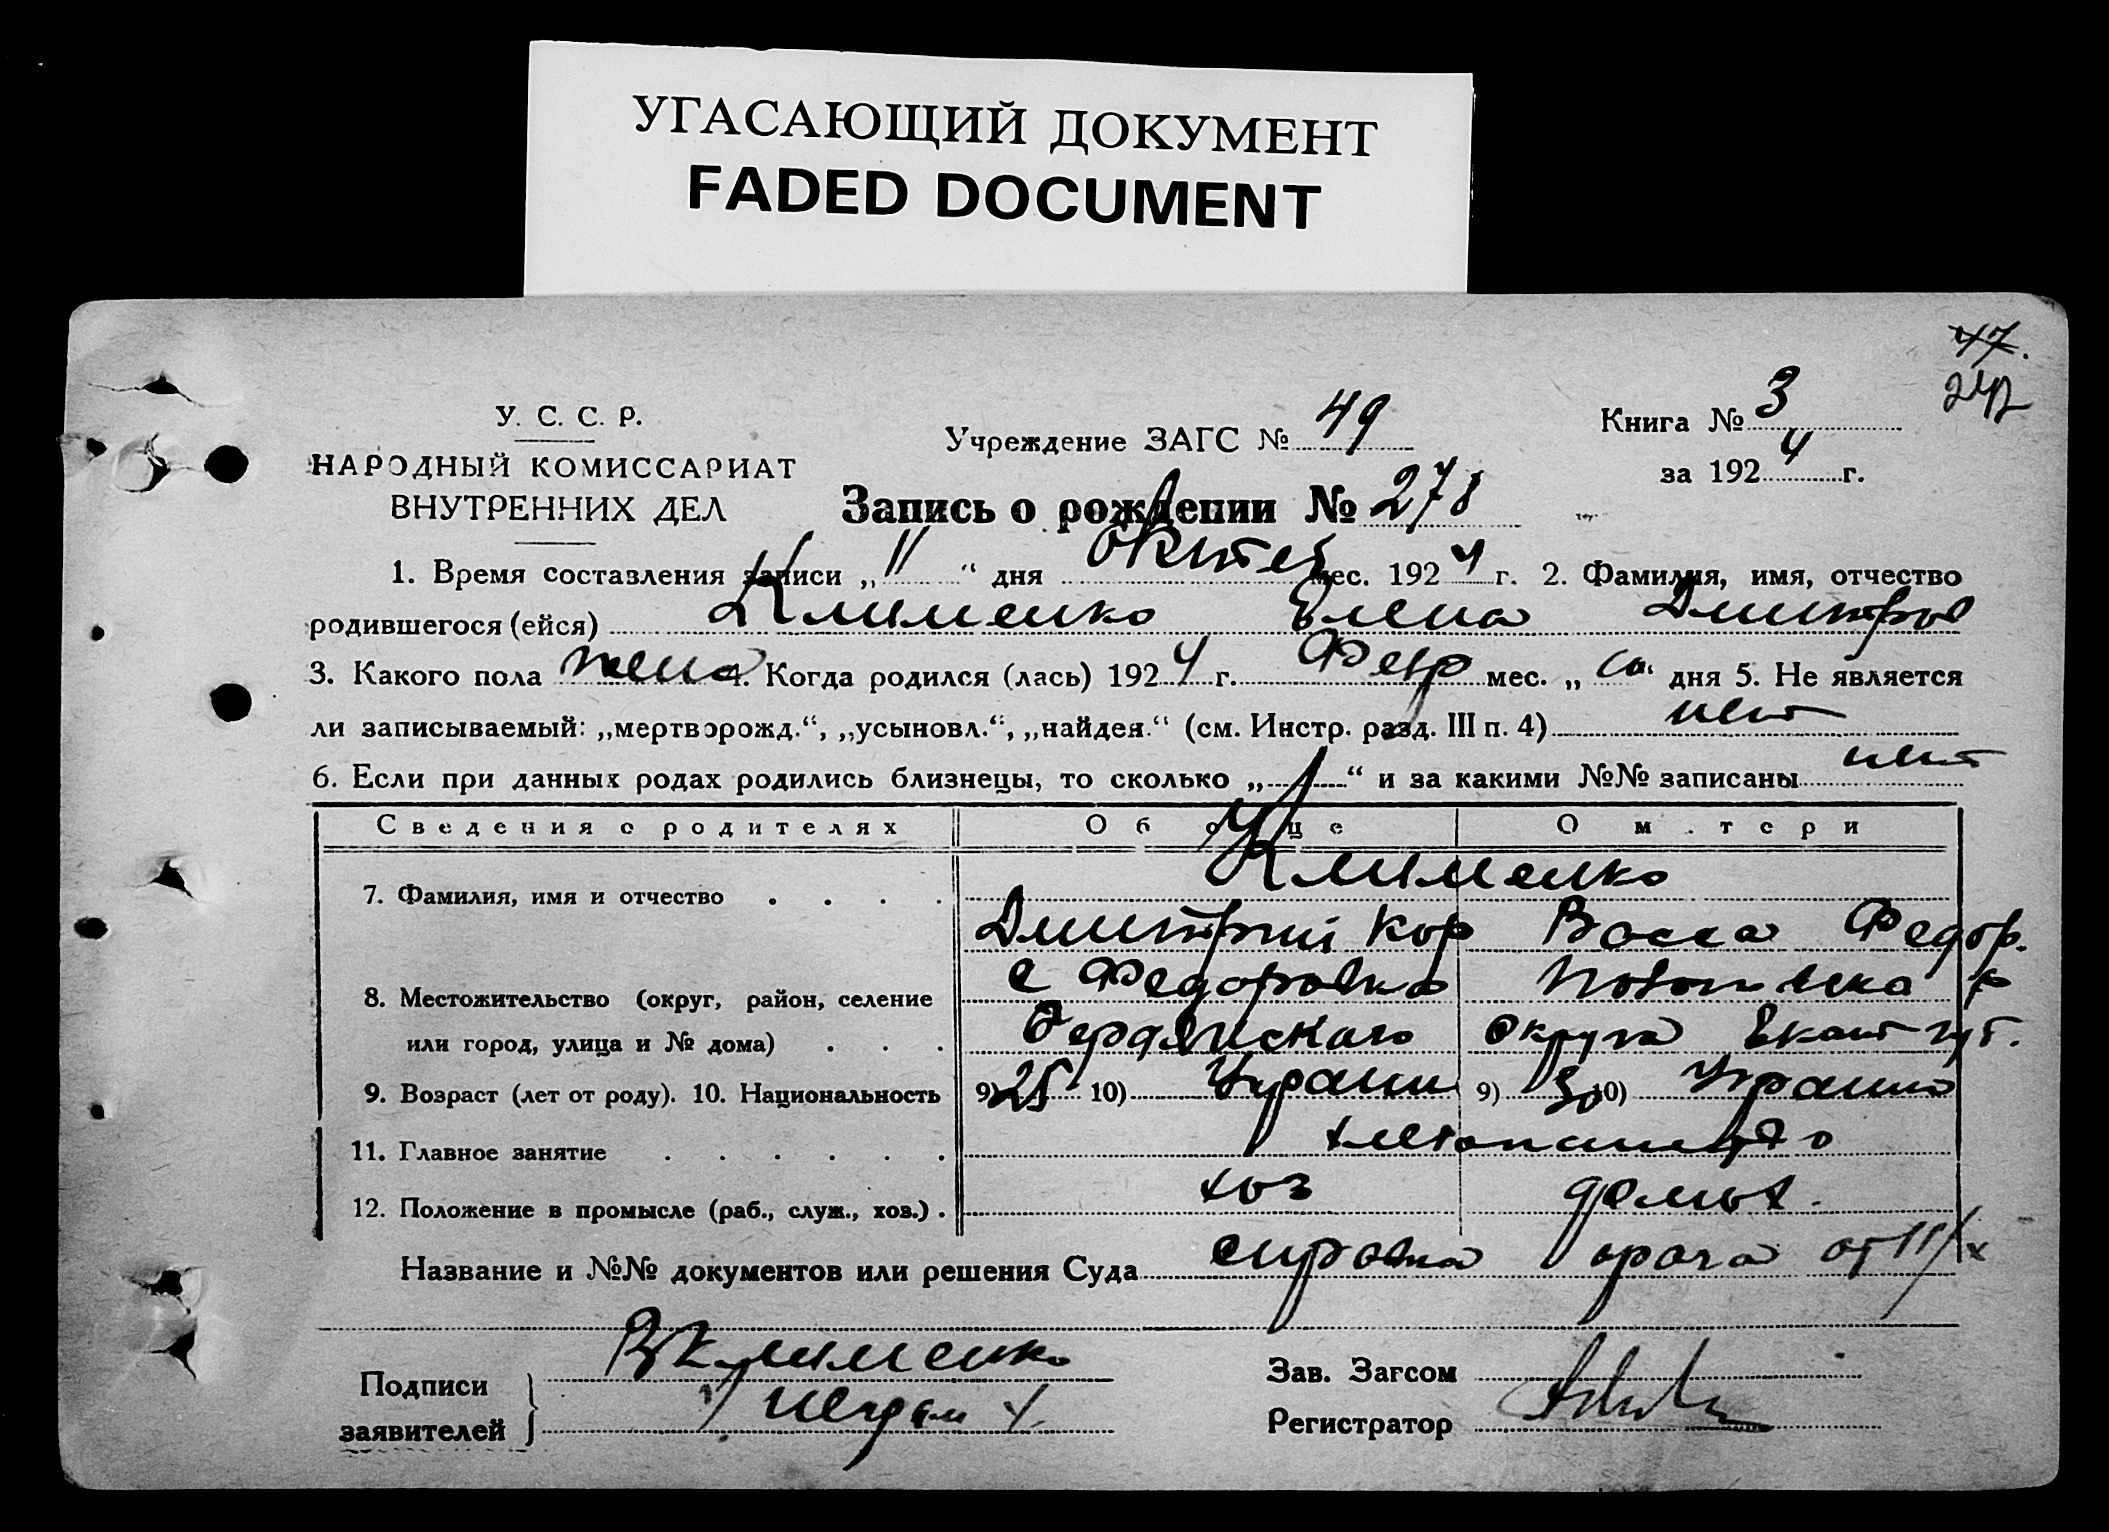 УГАСАЮЩИЙ ДОКУМЕНТ
FADED DOCUMENT
47.
242
У. С. С. Р.
НАРОДНЫЙ КОМИССАРИАТ
ВНУТРЕННИХ ДЕЛ
Учреждение ЗАГС № 49
Книга № 3
за 1924 г.
Запись о рождении № 278
1. Время составления записи „ 11 “ дня октяб мес. 1924 г. 2. Фамилия, имя, отчество
родившегося (ейся) Клименко Елена Дмитров
3. Какого пола жена 4. Когда родился (лась) 1924 г. мес. „ “ дня 5. Не является
ли записываемый: „мертворожд.“, „усыновл.“, „найден.“ (см. Инстр. разд. III п. 4) нет
6. Если при данных родах родились близнецы, то сколько „ “ и за какими №№ записаны нет
Сведения о родителях Об отце О матери
7. Фамилия, имя и отчество . . . . Клименко
Дмитрий Кор Васса Федор.
8. Местожительство (округ, район, селение с Федоровка
или город, улица и № дома) . . . Бердянского округа Екат губ.
9. Возраст (лет от роду). 10. Национальность 9) 25 10) Украин 9) 30 10) Украинк
11. Главное занятие . . . . . . хлебопашество
12. Положение в промысле (раб., служ., хоз.) . хоз домох.
Название и №№ документов или решения Суда справка врача от 11/х
Подписи
заявителей
ВКлименко
Зав. Загсом
Регистратор